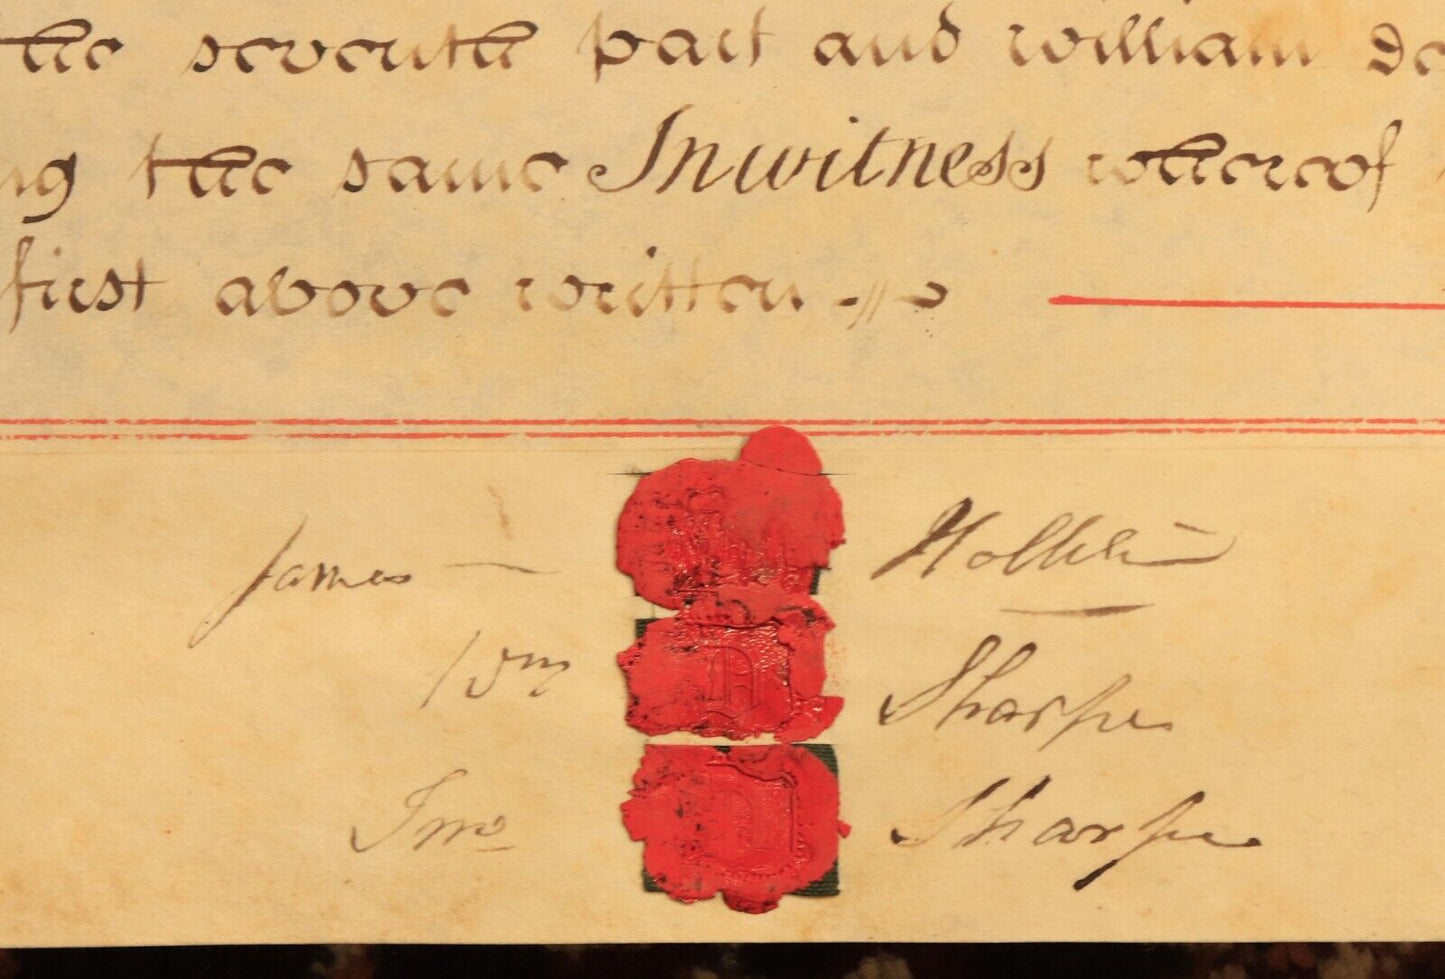 the seventh part and William
the same In witness whereof
first above written
James
Wm Sharpe
Jno Sharpe
D
D